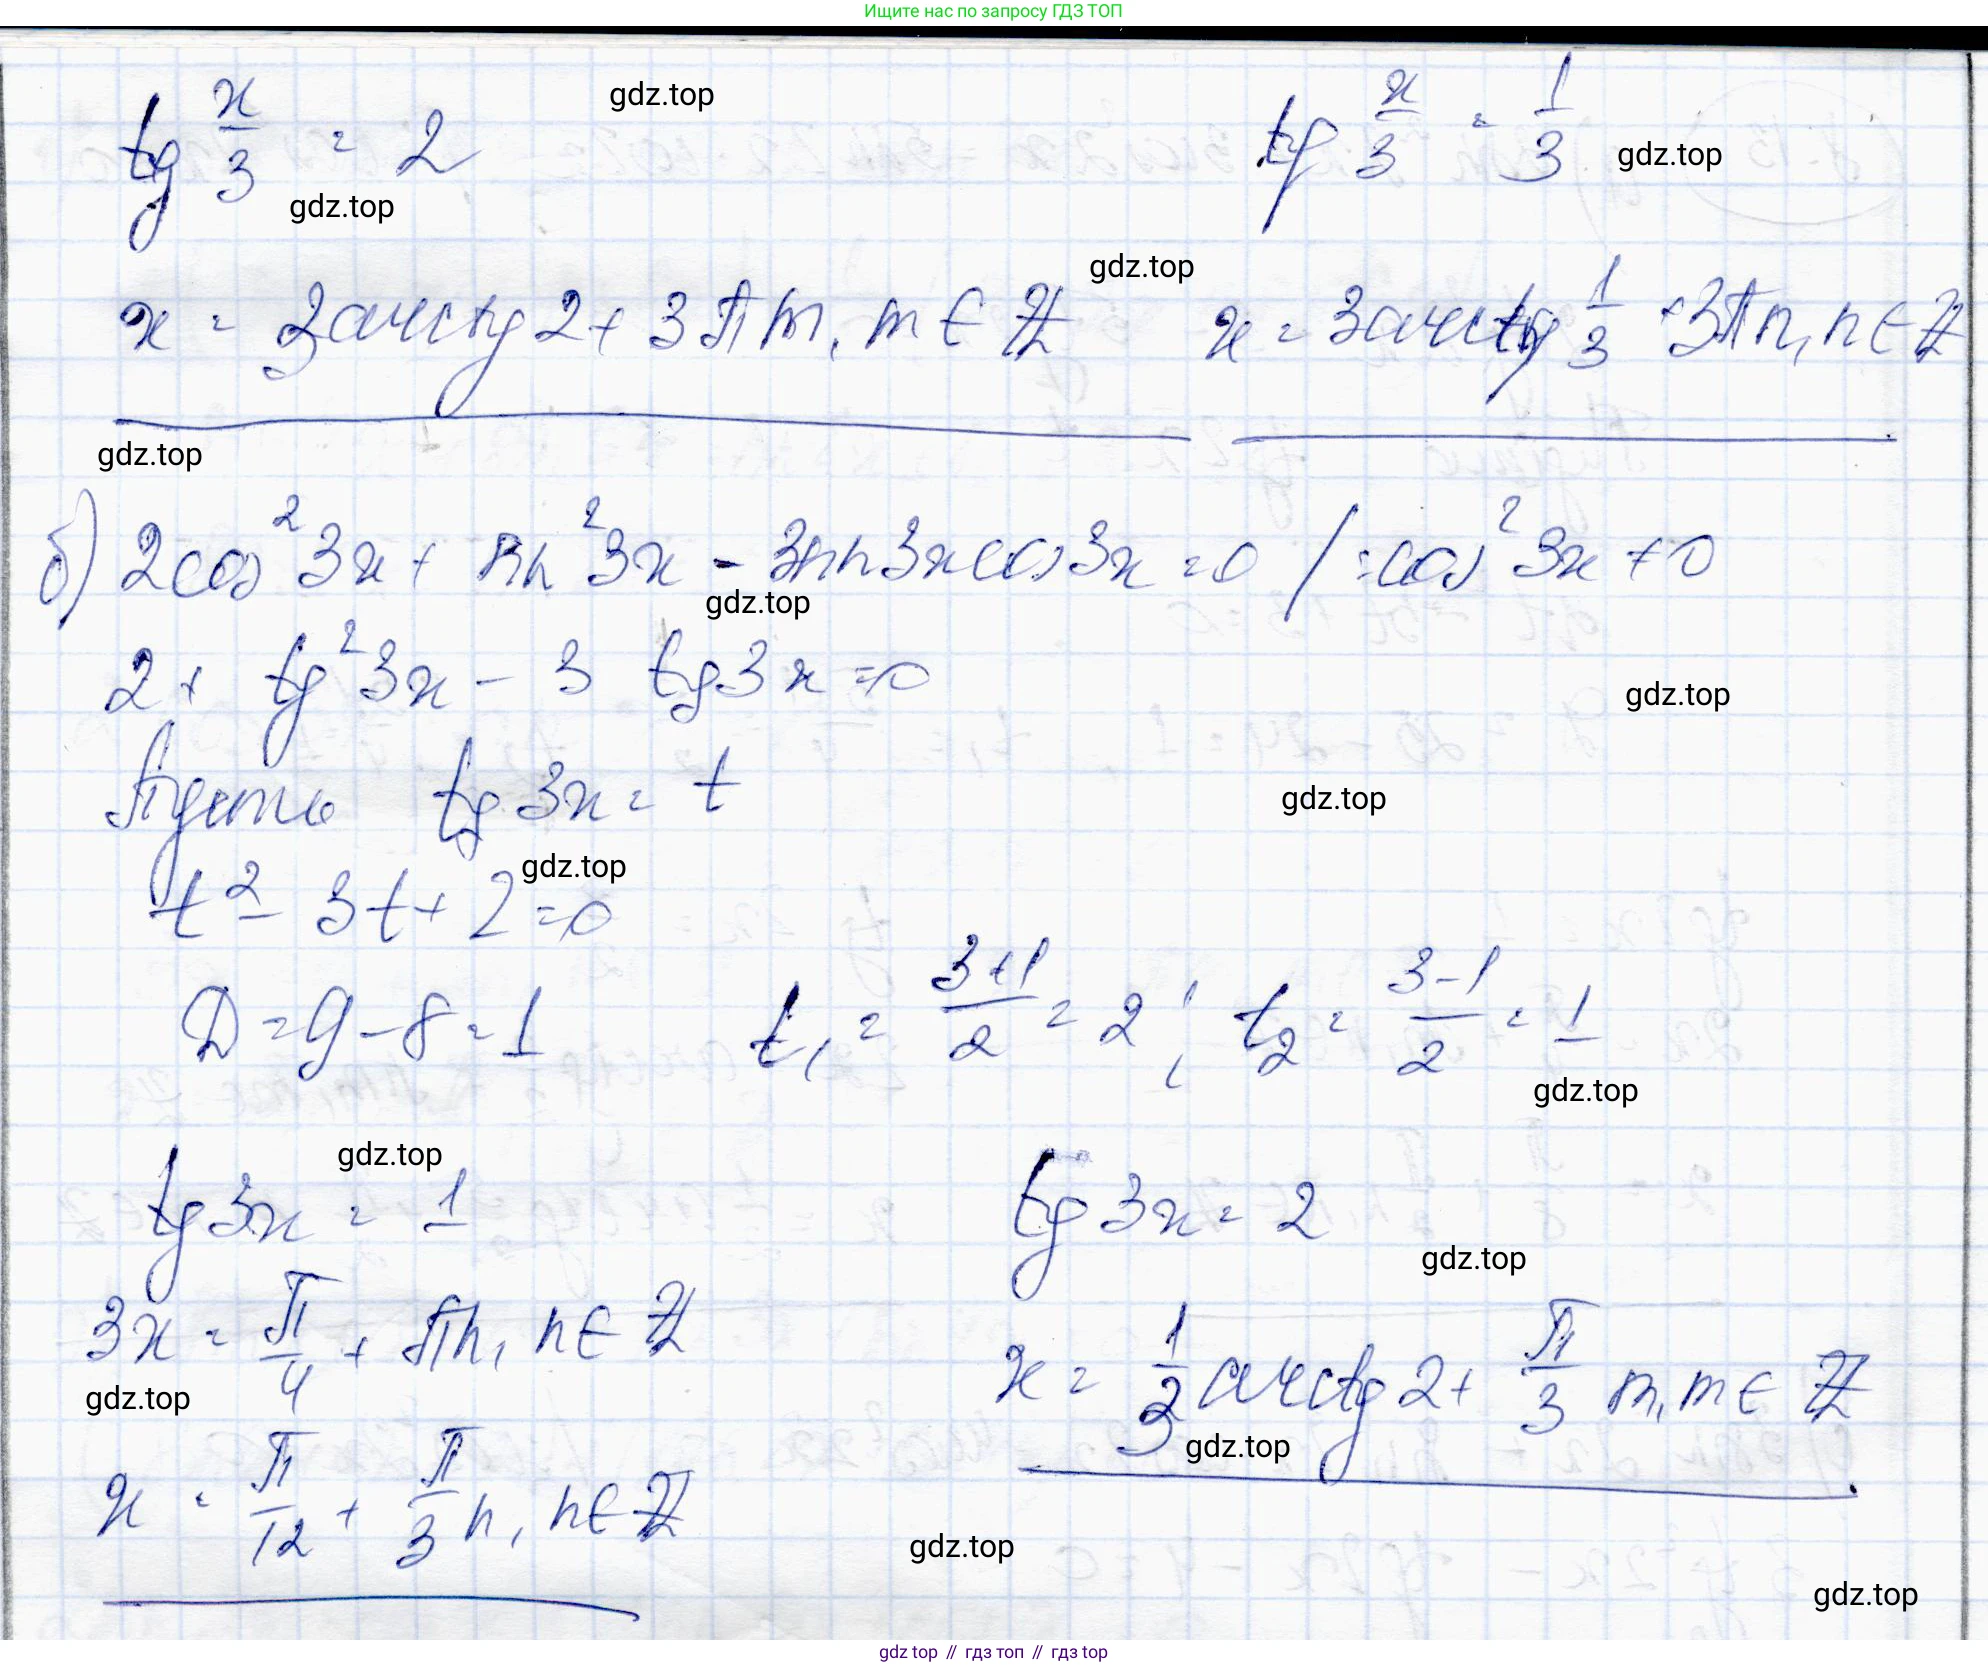 Ищите нас по запросу ГДЗ ТОП
tg x/3 = 2
gdz.top
tg x/3 = 1/3
gdz.top
gdz.top
gdz.top
x = 3arctg 2 + 3πm, m ∈ Z
x = 3arctg 1/3 + 3πn, n ∈ Z
gdz.top
б) 2cos² 3x + sin² 3x - 3sin 3x cos 3x = 0 / :cos² 3x ≠ 0
gdz.top
2 + tg² 3x - 3 tg 3x = 0
gdz.top
Пусть tg 3x = t
gdz.top
gdz.top
t² - 3t + 2 = 0
D = 9 - 8 = 1 t₁ = (3+1)/2 = 2; t₂ = (3-1)/2 = 1
gdz.top
gdz.top
tg 3x = 1
tg 3x = 2
gdz.top
3x = π/4 + πn, n ∈ Z
x = 1/3 arctg 2 + π/3 m, m ∈ Z
gdz.top
gdz.top
x = π/12 + π/3 n, n ∈ Z
gdz.top
gdz.top
gdz top // гдз топ // гдз top